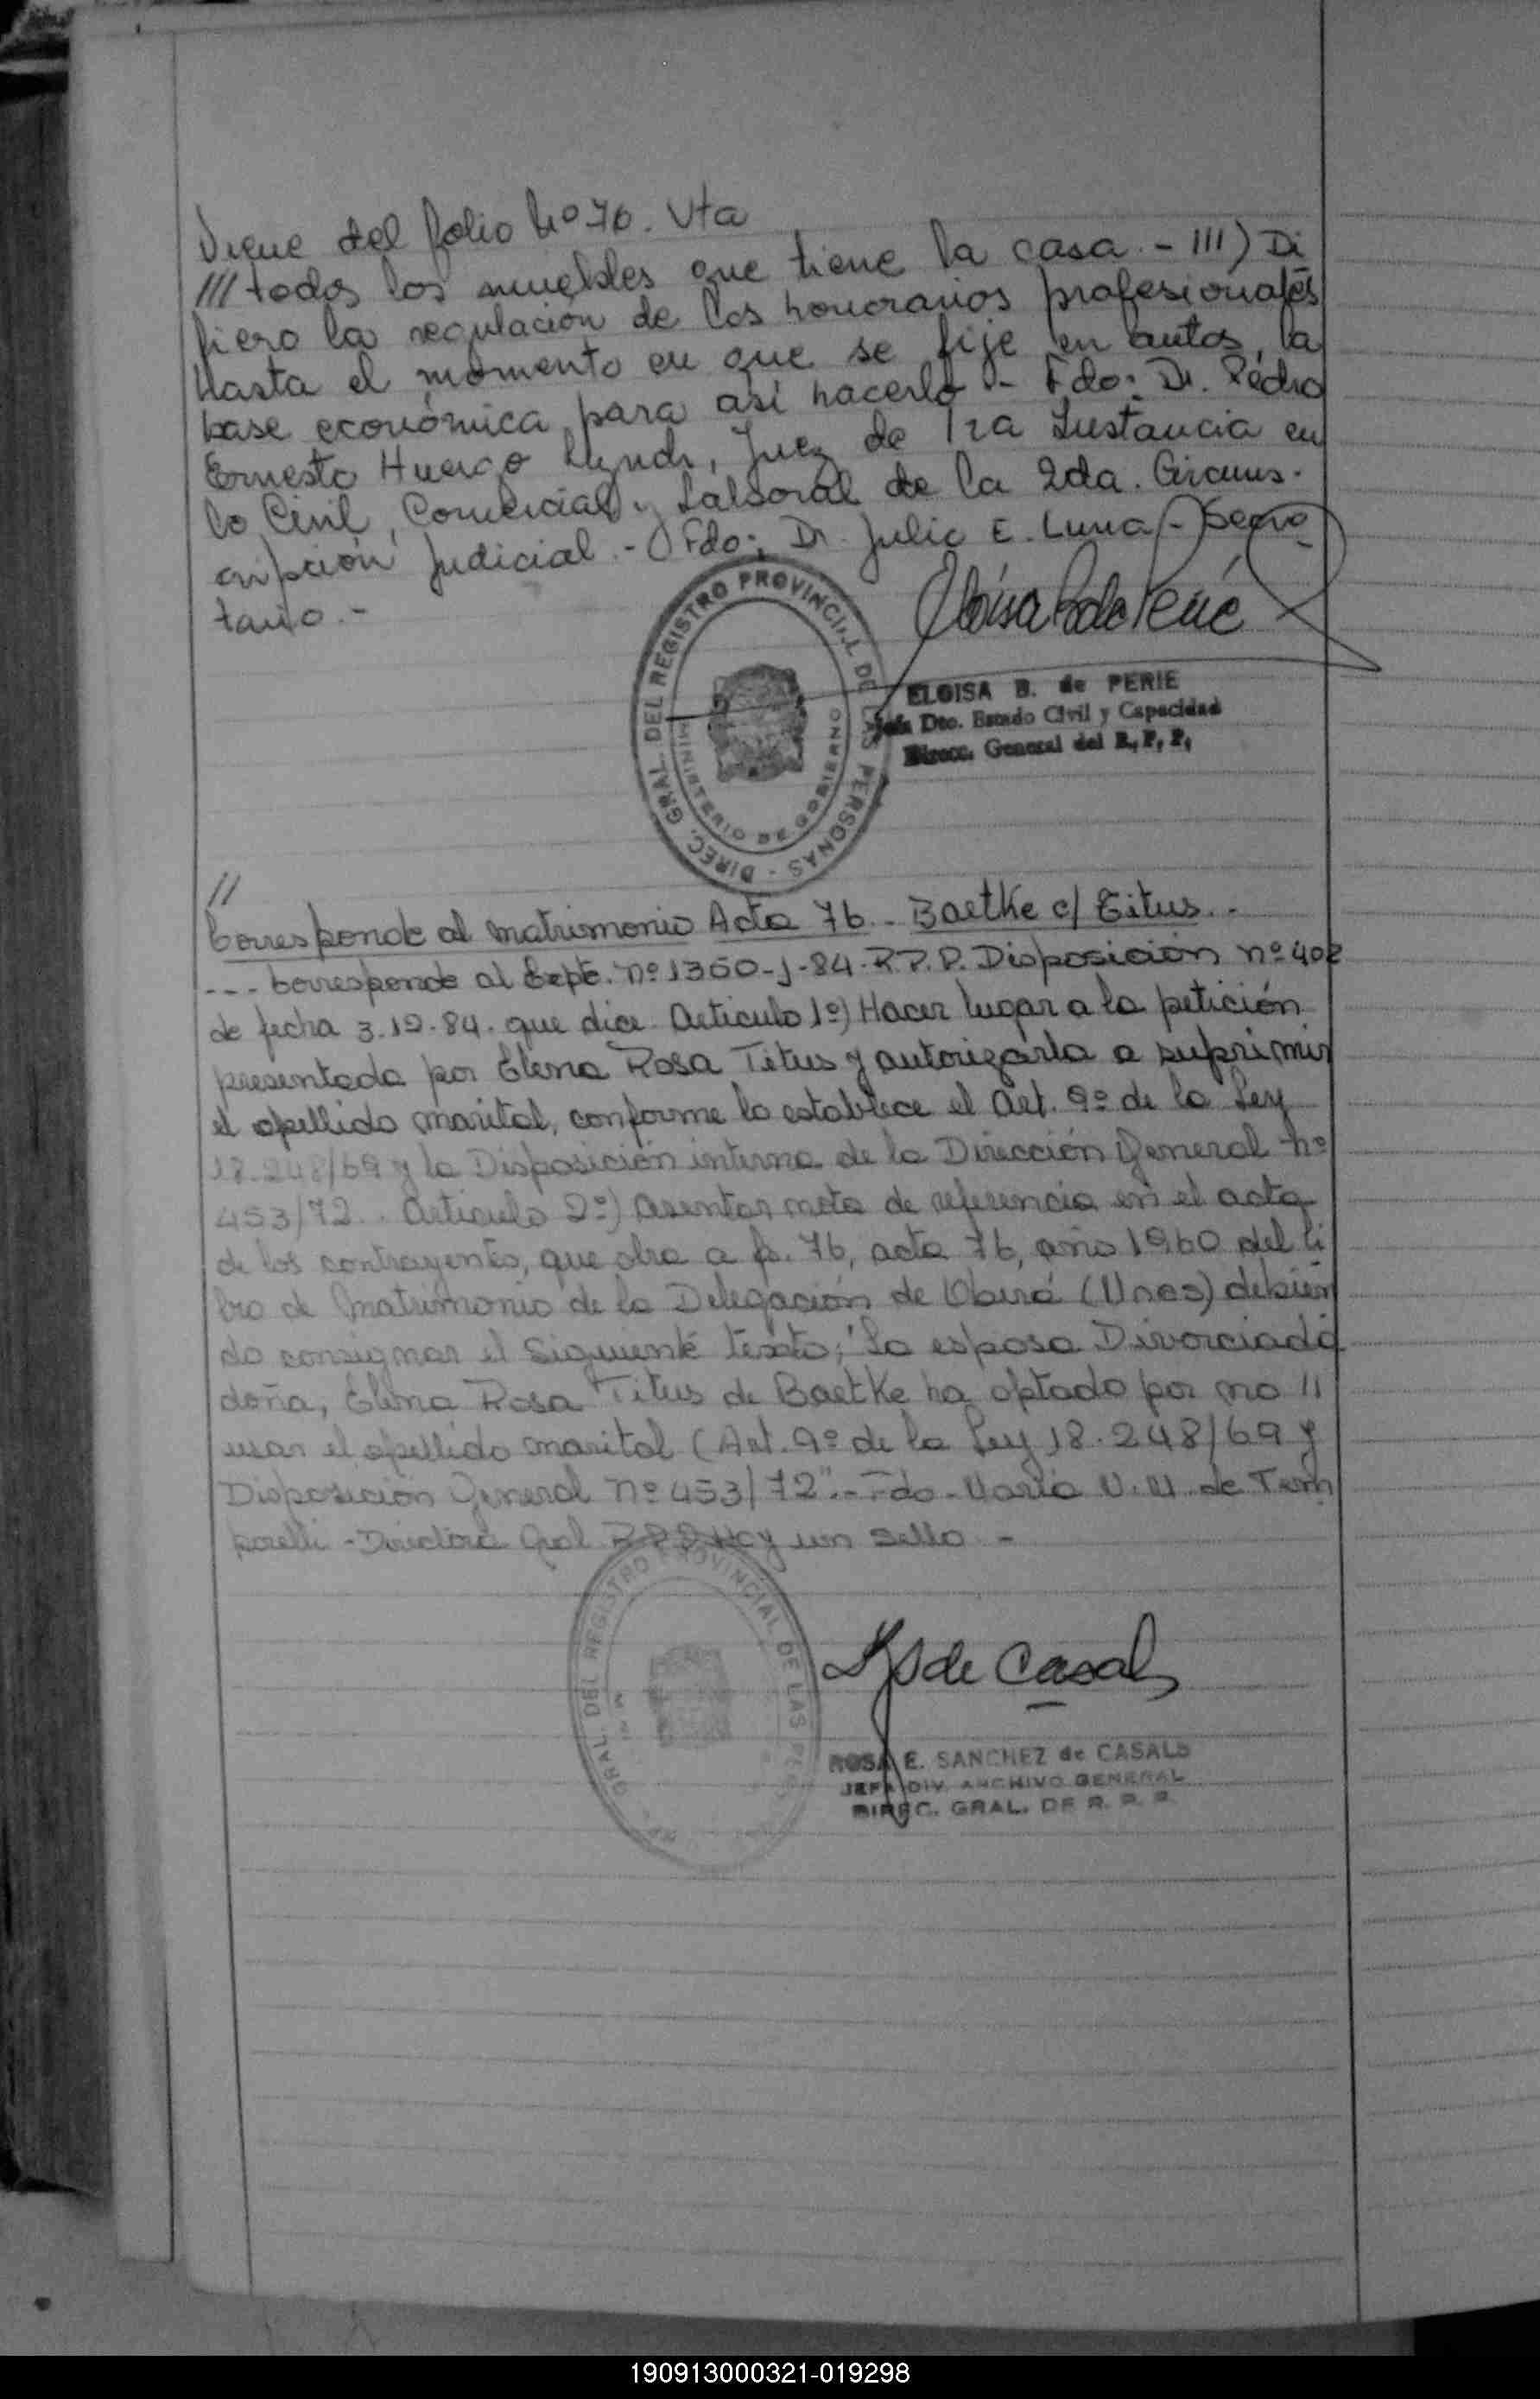 Viene del folio Nº 76. Vta
/// todos los muebles que tiene la casa. - III) Di
fiero la regulación de los honorarios profesionales
hasta el momento en que se fije en autos, la
base económica para así hacerlo - Fdo: Dr. Pedro
Ernesto Huergo Lynch, Juez de 1ra Instancia en
lo Civil, Comercial y Laboral de la 2da. Circuns-
cripción Judicial. - Fdo: Dr. Julio E. Luna - Secre
tario. -
DIREC. GRAL. DEL REGISTRO PROVINCIAL DE LAS PERSONAS -
MINISTERIO DE GOBIERNO
ELOISA B. de PERIE
Jefa Dto. Estado Civil y Capacidad
Direcc. General del R. P. P.
//
Corresponde al matrimonio Acta 76 - Baetke c/ Titus. -
--- Corresponde al Expte. nº 1350-J-84-R.P.P. Disposición nº 402
de fecha 3.12.84. que dice Articulo 1º) Hacer lugar a la petición
presentada por Elena Rosa Titus y autorizarla a suprimir
el apellido marital, conforme lo establece el Art. 9º de la Ley
18.248/69 y la Disposición interna de la Dirección General nº
453/72.. Articulo 2º) Asentar nota de referencia en el acta
de los contrayentes, que obra a fs. 76, acta 76, año 1960 del li
bro de Matrimonio de la Delegación de Oberá (Unos) debien
do consignar el siguiente texto; "La esposa Divorciada
doña, Elena Rosa Titus de Baetke ha optado por no //
usar el apellido marital (Art. 9º de la Ley 18.248/69 y
Disposición General nº 453/72". - Fdo - Maria V. M. de Tem
porelli - Directora Gral R.P.P. Hay un sello -
GRAL. DEL REGISTRO PROVINCIAL DE LAS
de Casals
ROSA E. SANCHEZ de CASALS
JEFA DIV. ARCHIVO GENERAL
DIREC. GRAL. DE R. P. P.
190913000321-019298